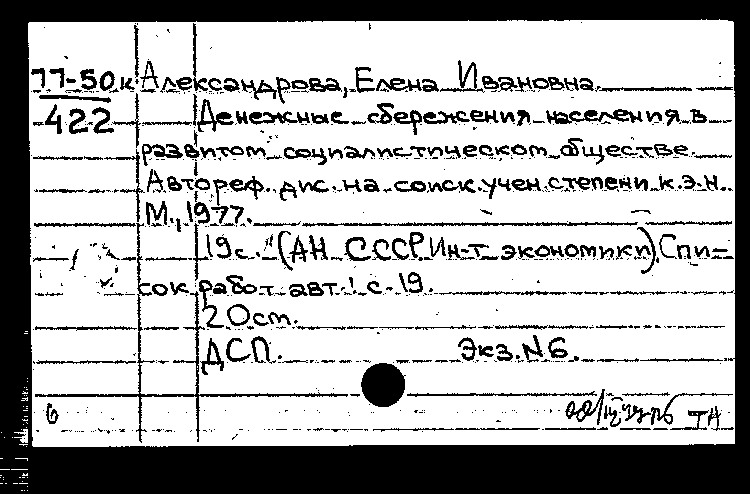 77-50к Александрова, Елена Ивановна.
422 Денежные сбережения населения в
развитом социалистическом обществе.
Автореф. дис. на соиск. учен. степени к.э.н.
М., 1977.
19 с. (АН СССР. Ин-т экономики). Спи-
сок работ авт.: с. 19.
20 ст.
ДСП. Экз. N6.
6 ТН